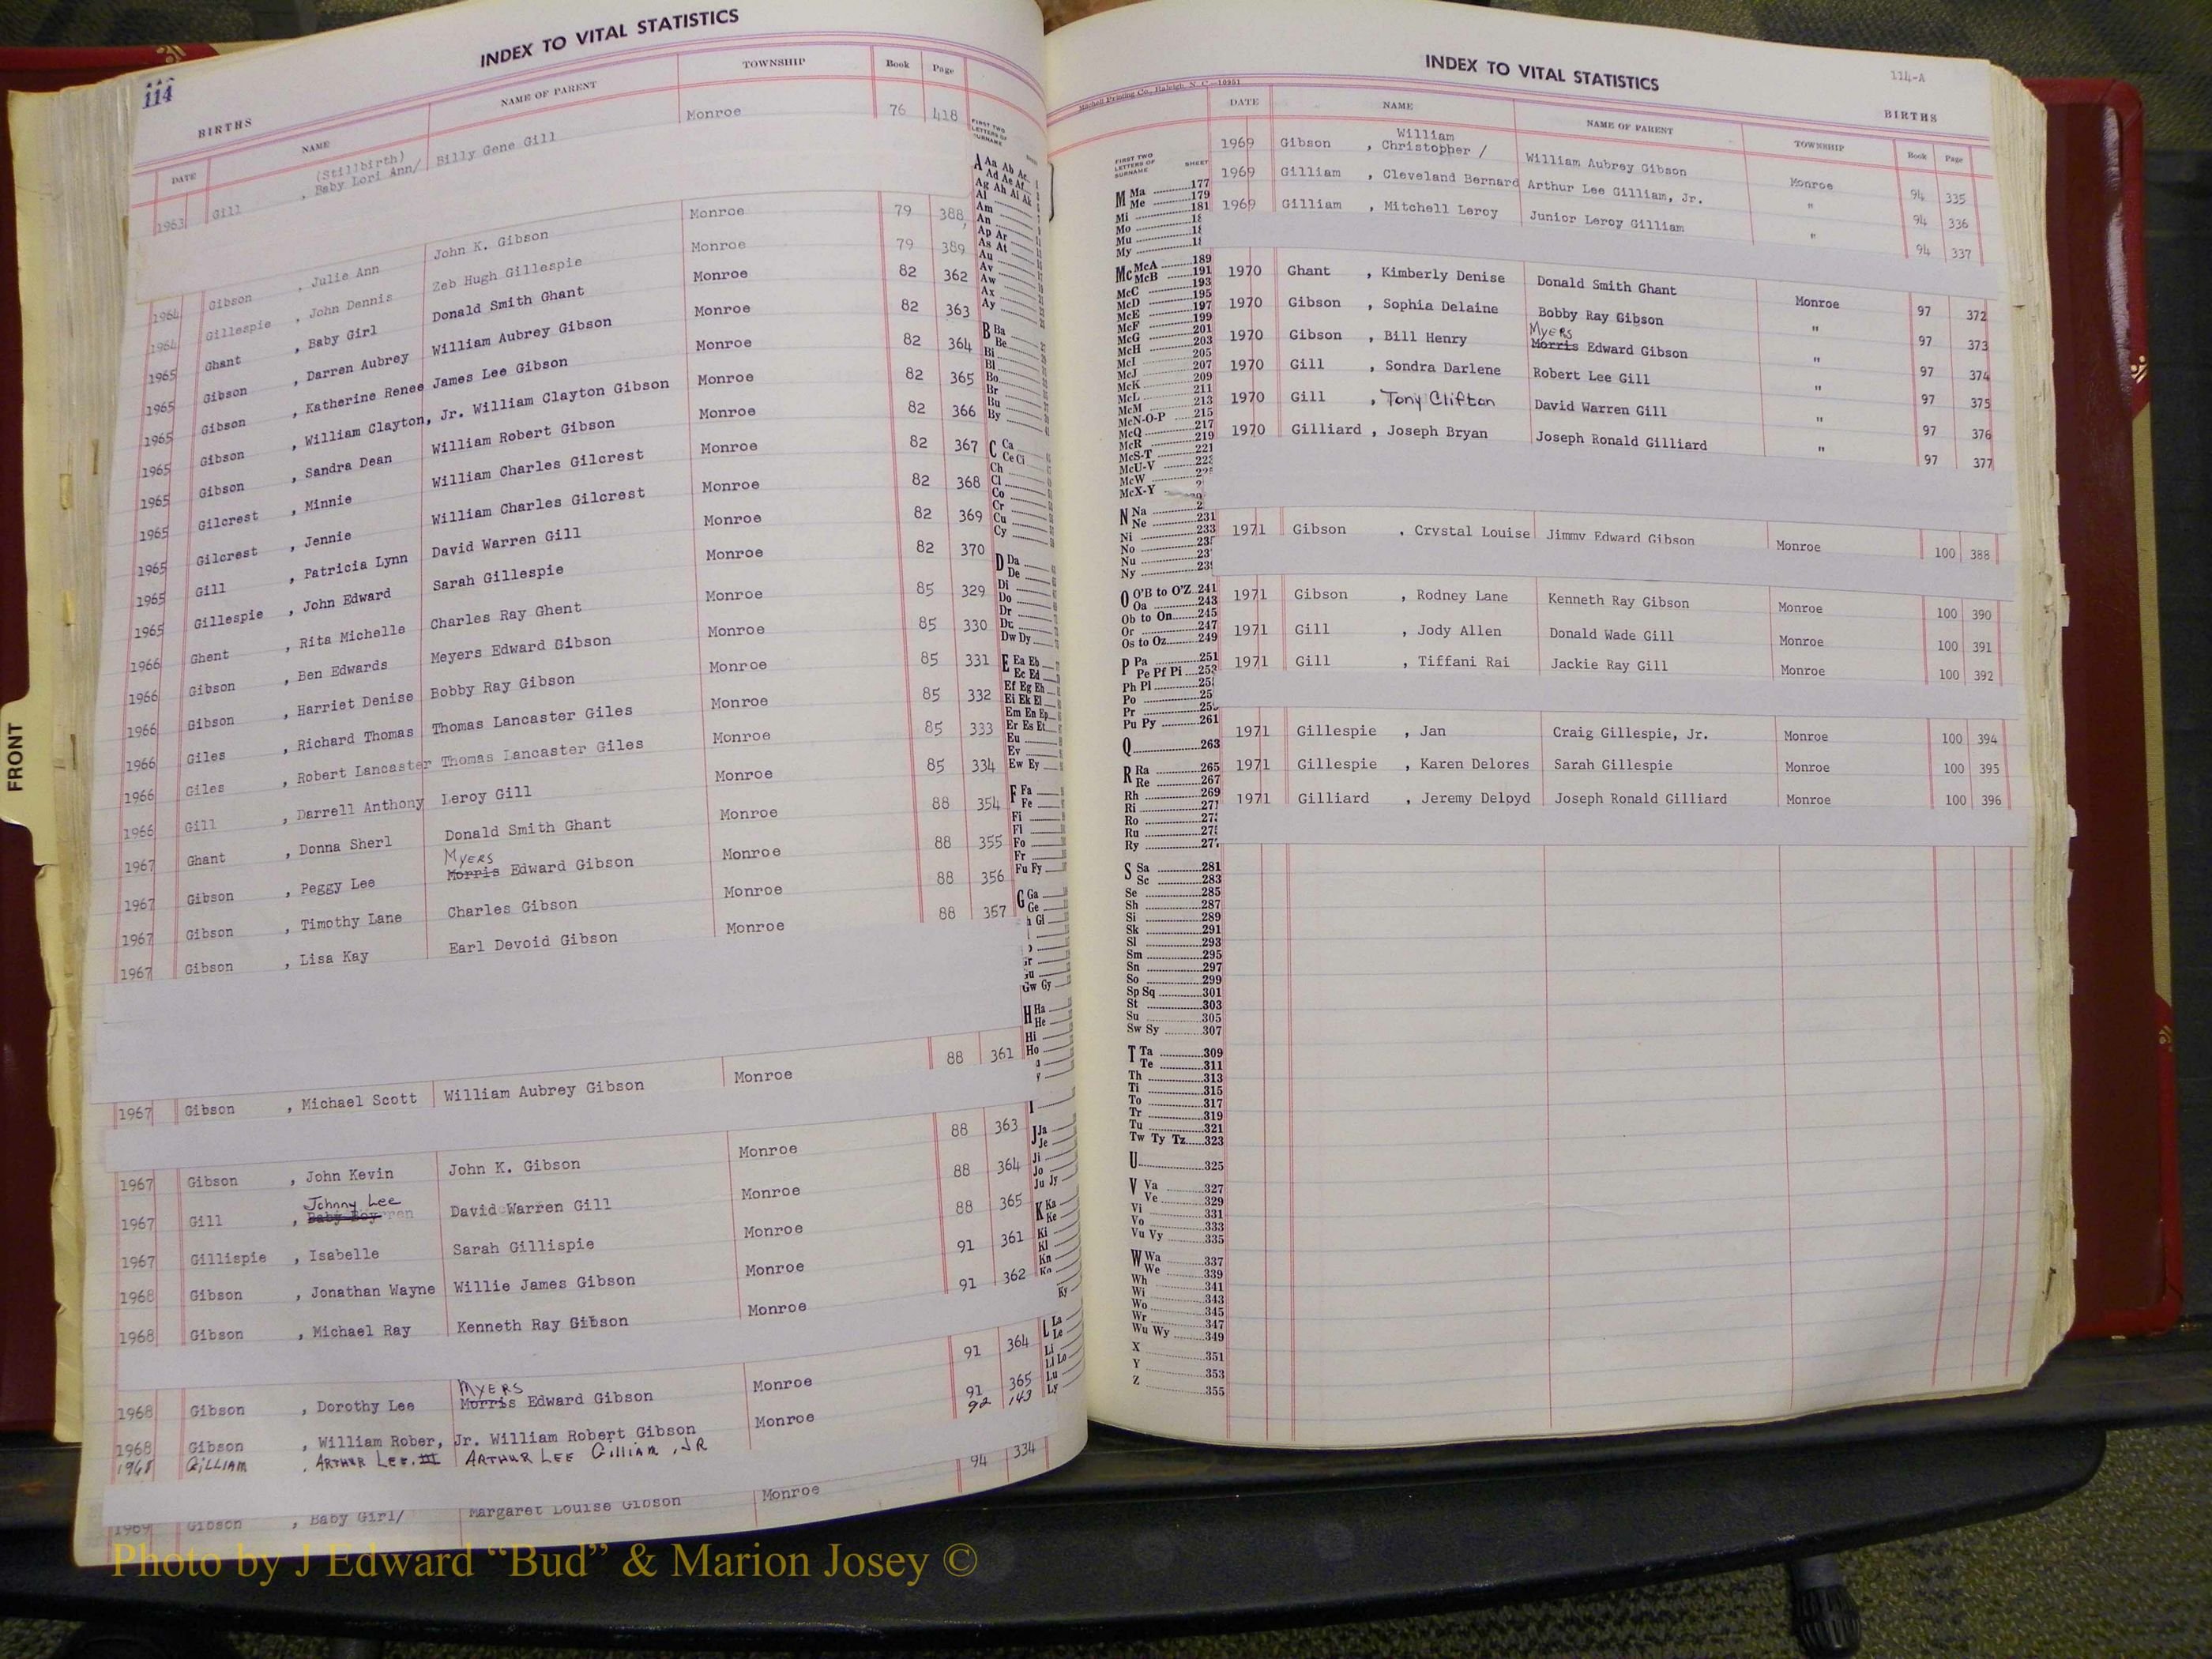 114
INDEX TO VITAL STATISTICS
BIRTHS
DATE NAME NAME OF PARENT TOWNSHIP Book Page
(Stillbirth)
1963 Gill , Baby Lori Ann/ Billy Gene Gill Monroe 76 418
1964 Gibson , Julie Ann John K. Gibson Monroe 79 388
1964 Gillespie , John Dennis Zeb Hugh Gillespie Monroe 79 389
1965 Ghant , Baby Girl Donald Smith Ghant Monroe 82 362
1965 Gibson , Darren Aubrey William Aubrey Gibson Monroe 82 363
1965 Gibson , Katherine Renee James Lee Gibson Monroe 82 364
1965 Gibson , William Clayton, Jr. William Clayton Gibson Monroe 82 365
1965 Gibson , Sandra Dean William Robert Gibson Monroe 82 366
1965 Gilcrest , Minnie William Charles Gilcrest Monroe 82 367
1965 Gilcrest , Jennie William Charles Gilcrest Monroe 82 368
1965 Gill , Patricia Lynn David Warren Gill Monroe 82 369
1965 Gillespie , John Edward Sarah Gillespie Monroe 82 370
1966 Ghent , Rita Michelle Charles Ray Ghent Monroe 85 329
1966 Gibson , Ben Edwards Meyers Edward Gibson Monroe 85 330
1966 Gibson , Harriet Denise Bobby Ray Gibson Monroe 85 331
1966 Giles , Richard Thomas Thomas Lancaster Giles Monroe 85 332
1966 Giles , Robert Lancaster Thomas Lancaster Giles Monroe 85 333
1966 Gill , Darrell Anthony Leroy Gill Monroe 85 334
1967 Ghant , Donna Sherl Donald Smith Ghant Monroe 88 354
Myers
1967 Gibson , Peggy Lee Morris Edward Gibson Monroe 88 355
1967 Gibson , Timothy Lane Charles Gibson Monroe 88 356
1967 Gibson , Lisa Kay Earl Devoid Gibson Monroe 88 357
1967 Gibson , Michael Scott William Aubrey Gibson Monroe 88 361
1967 Gibson , John Kevin John K. Gibson Monroe 88 363
Johnny Lee
1967 Gill , Baby Boy David Warren Gill Monroe 88 364
1967 Gillispie , Isabelle Sarah Gillispie Monroe 88 365
1968 Gibson , Jonathan Wayne Willie James Gibson Monroe 91 361
1968 Gibson , Michael Ray Kenneth Ray Gibson Monroe 91 362
Myers
1968 Gibson , Dorothy Lee Morris Edward Gibson Monroe 91 364
1968 Gibson , William Rober, Jr. William Robert Gibson Monroe 91 365
1968 Gilliam , Arthur Lee, III Arthur Lee Gilliam, JR 92 143
1969 Gibson , Baby Girl/ Margaret Louise Gibson Monroe 94 334
FRONT
FIRST TWO LETTERS OF SURNAME
A Aa Ab Ac
Ad Ae Af
Ag Ah Ai Ak
Al
Am
An
Ap Ar
As At
Au
Av
Aw
Ax
Ay
B Ba
Be
Bi
Bl
Bo
Br
Bu
By
C Ca
Ce Ci
Ch
Cl
Co
Cr
Cu
Cy
D Da
De
Di
Do
Dr
Du
Dw Dy
E Ea Eb
Ec Ed
Ef Eg Eh
Ei Ek El
Em En Ep
Er Es Et
Eu
Ev
Ew Ey
F Fa
Fe
Fi
Fl
Fo
Fr
Fu Fy
G Ga
Ge
Gw Gy
H Ha
He
Hi
Ho
I
J Ja
Je
Ji
Jo
Ju Jy
K Ka
Ke
Ki
Kl
Kn
Ko
Ky
L La
Le
Li
Ll Lo
Lu
Ly
114-A
INDEX TO VITAL STATISTICS
Mitchell Printing Co., Raleigh, N. C.—10951
BIRTHS
DATE NAME NAME OF PARENT TOWNSHIP Book Page
William
1969 Gibson , Christopher / William Aubrey Gibson Monroe 94 335
1969 Gilliam , Cleveland Bernard Arthur Lee Gilliam, Jr. " 94 336
1969 Gilliam , Mitchell Leroy Junior Leroy Gilliam " 94 337
1970 Ghant , Kimberly Denise Donald Smith Ghant Monroe 97 372
1970 Gibson , Sophia Delaine Bobby Ray Gibson " 97 373
Myers
1970 Gibson , Bill Henry Morris Edward Gibson " 97 374
1970 Gill , Sondra Darlene Robert Lee Gill " 97 375
1970 Gill , Tony Clifton David Warren Gill " 97 376
1970 Gilliard , Joseph Bryan Joseph Ronald Gilliard " 97 377
1971 Gibson , Crystal Louise Jimmy Edward Gibson Monroe 100 388
1971 Gibson , Rodney Lane Kenneth Ray Gibson Monroe 100 390
1971 Gill , Jody Allen Donald Wade Gill Monroe 100 391
1971 Gill , Tiffani Rai Jackie Ray Gill Monroe 100 392
1971 Gillespie , Jan Craig Gillespie, Jr. Monroe 100 394
1971 Gillespie , Karen Delores Sarah Gillespie Monroe 100 395
1971 Gilliard , Jeremy Deloyd Joseph Ronald Gilliard Monroe 100 396
FIRST TWO LETTERS OF SURNAME SHEET
M Ma 177
Me 179
Mi 181
Mo
Mu
My
Mc McA 189
McB 191
McC 193
McD 195
McE 197
McF 199
McG 201
McH 203
McI 205
McJ 207
McK 209
McL 211
McM 213
McN-O-P 215
McQ 217
McR 219
McS-T 221
McU-V
McW
McX-Y
N Na
Ne 231
Ni 233
No
Nu
Ny
O O'B to O'Z 241
Oa 243
Ob to On 245
Or 247
Os to Oz 249
P Pa 251
Pe Pf Pi
Ph Pl
Po
Pr
Pu Py 261
Q 263
R Ra 265
Re 267
Rh 269
Ri 271
Ro
Ru
Ry
S Sa 281
Sc 283
Se 285
Sh 287
Si 289
Sk 291
Sl 293
Sm 295
Sn 297
So 299
Sp Sq 301
St 303
Su 305
Sw Sy 307
T Ta 309
Te 311
Th 313
Ti 315
To 317
Tr 319
Tu 321
Tw Ty Tz 323
U 325
V Va 327
Ve 329
Vi 331
Vo 333
Vu Vy 335
W Wa 337
We 339
Wh 341
Wi 343
Wo 345
Wr 347
Wu Wy 349
X 351
Y 353
Z 355
Photo by J Edward “Bud” & Marion Josey ©